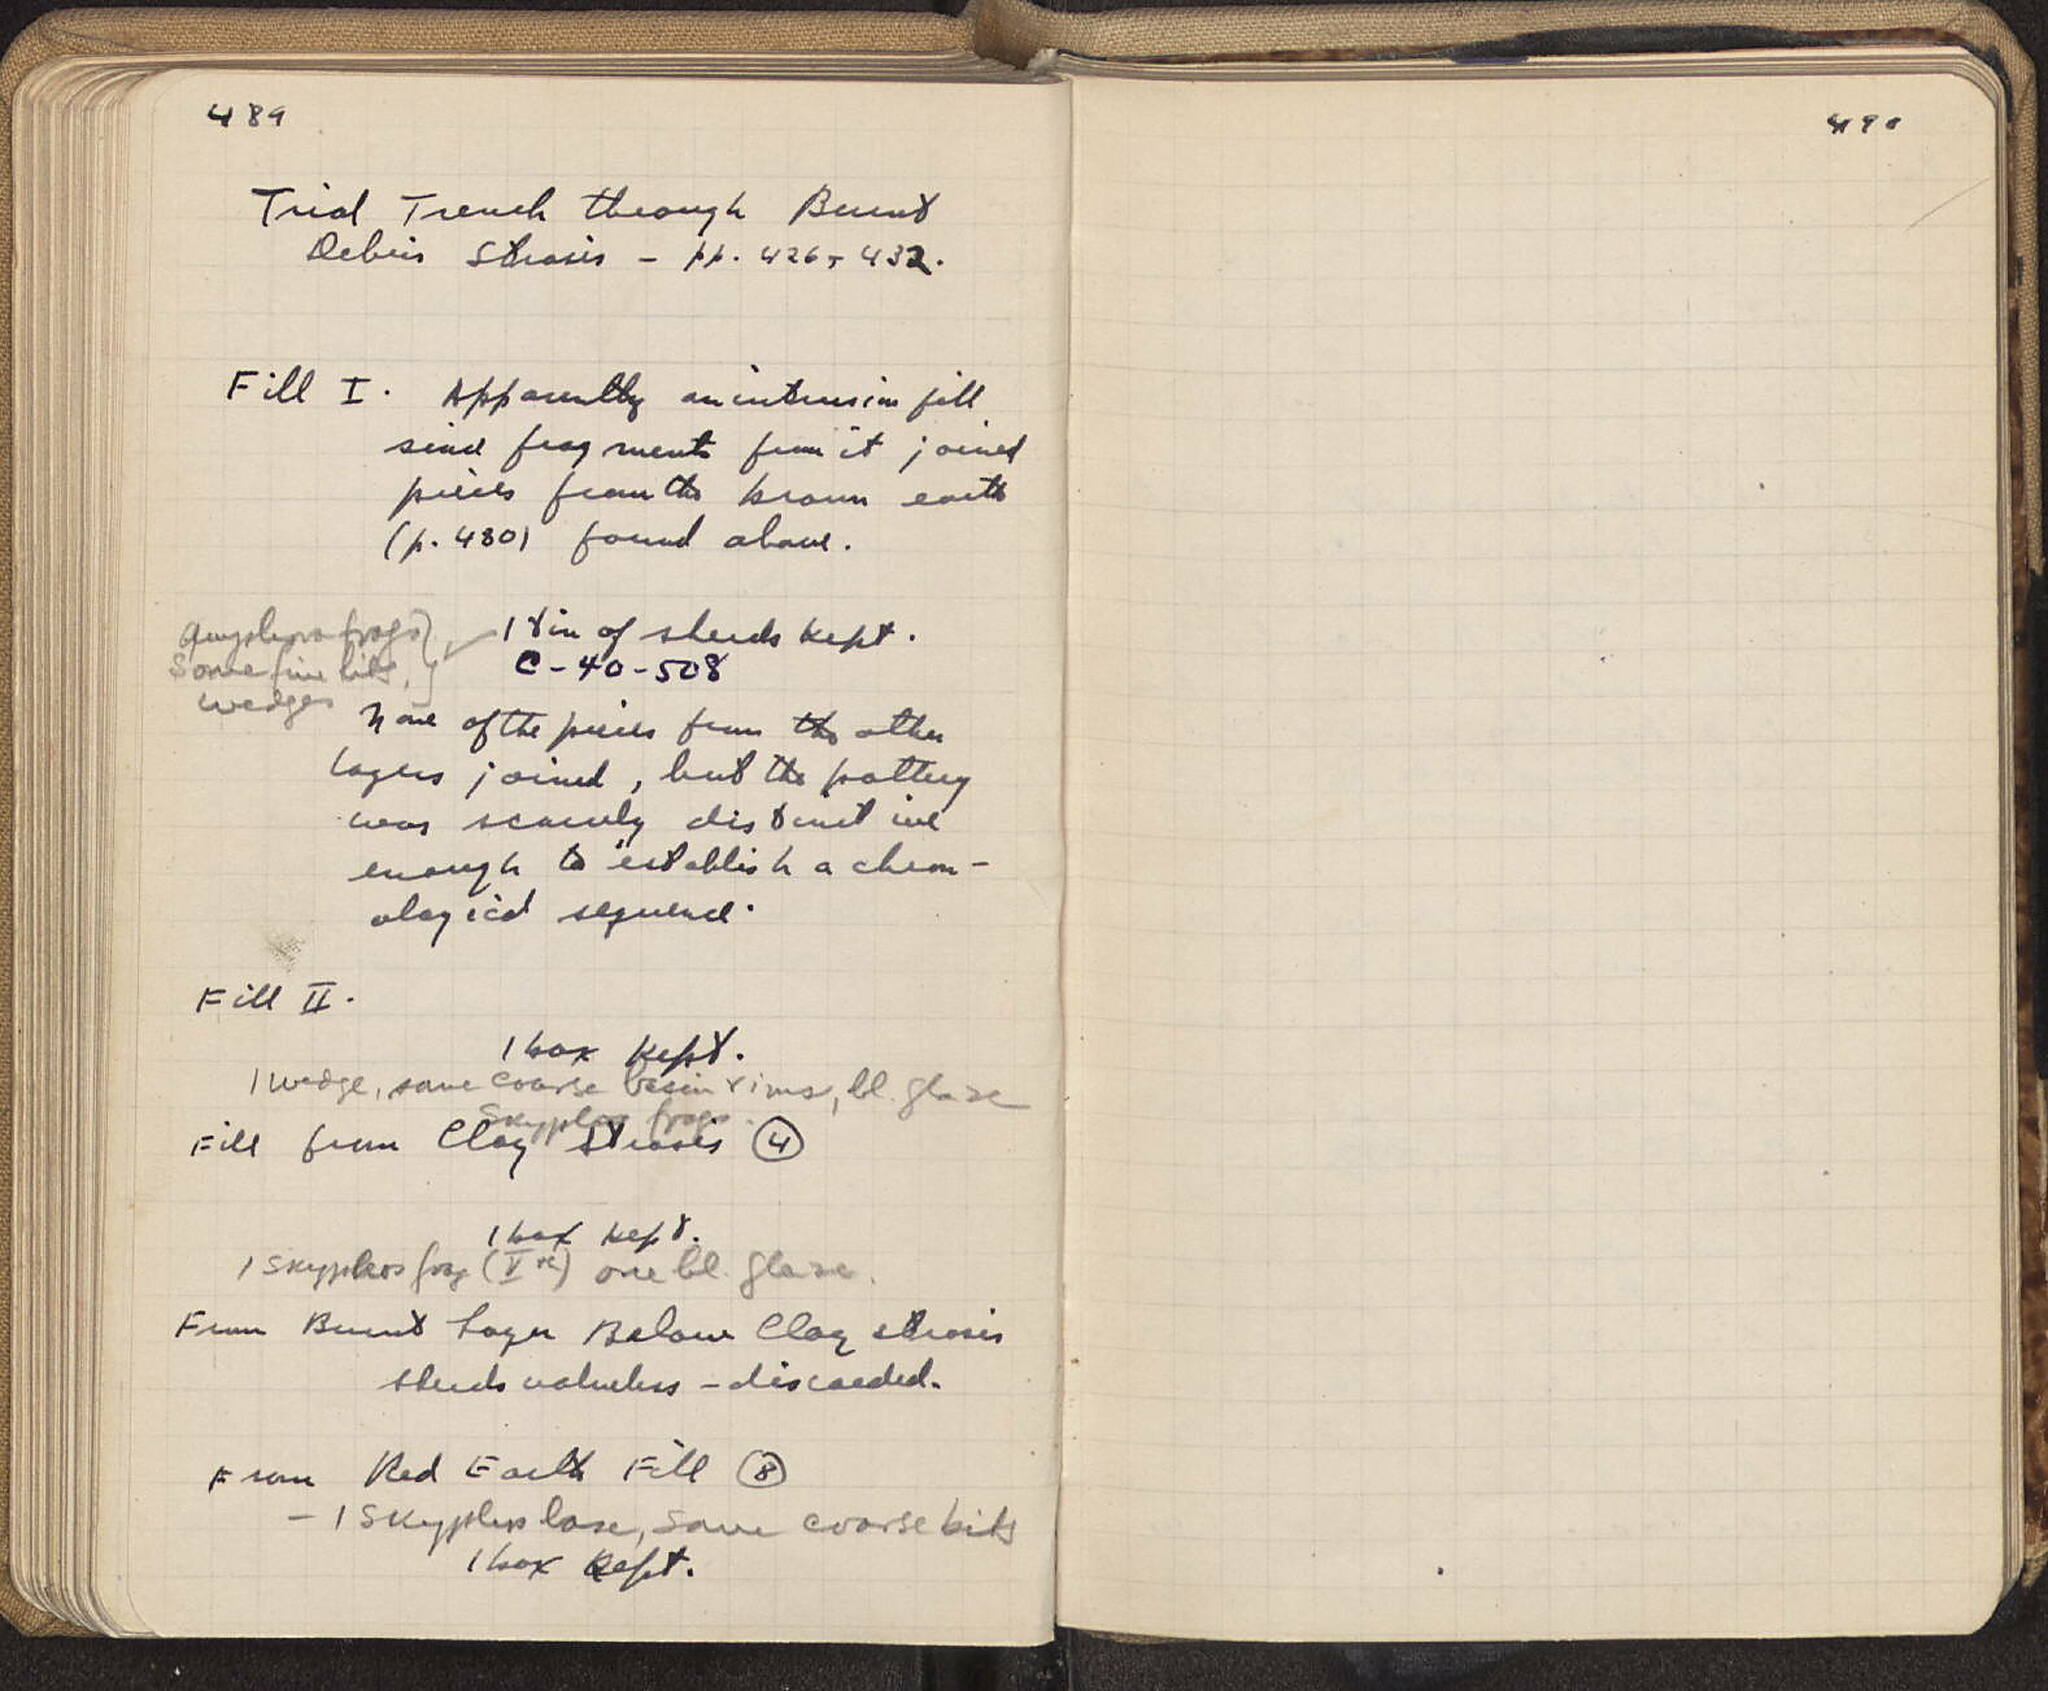 489
Trial Trench through Burnt
Debris Strosis - pp. 426, 432.
Fill I. Apparently an intrusion fill
since fragments from it joined
pieces from the brown earth
(p. 480) found above.
amphora frags
some fine bits,
wedges
1 tin of sherds kept.
C-40-508
None of the pieces from the other
layers joined, but the pottery
was scarcely distinctive
enough to establish a chron-
ological sequence.
Fill II.
1 box kept.
1 wedge, some coarse basin rims, bl. glaze
skyphos frags.
Fill from Clay Strosis 4
1 box kept.
1 skyphos frag (V) one bl. glaze.
From Burnt Layer Below Clay strosis
sherds valueless - discarded.
From Red Earth Fill 8
- 1 skyphos base, some coarse bits
1 box kept.
490